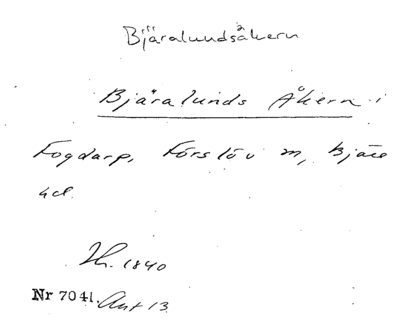 Bjäralundsåkern
Bjäralunds Åkern i
Fogdarp, Förslöv sn, Bjäre
hd.
Th. 1840
Nr 7041. Akt 13